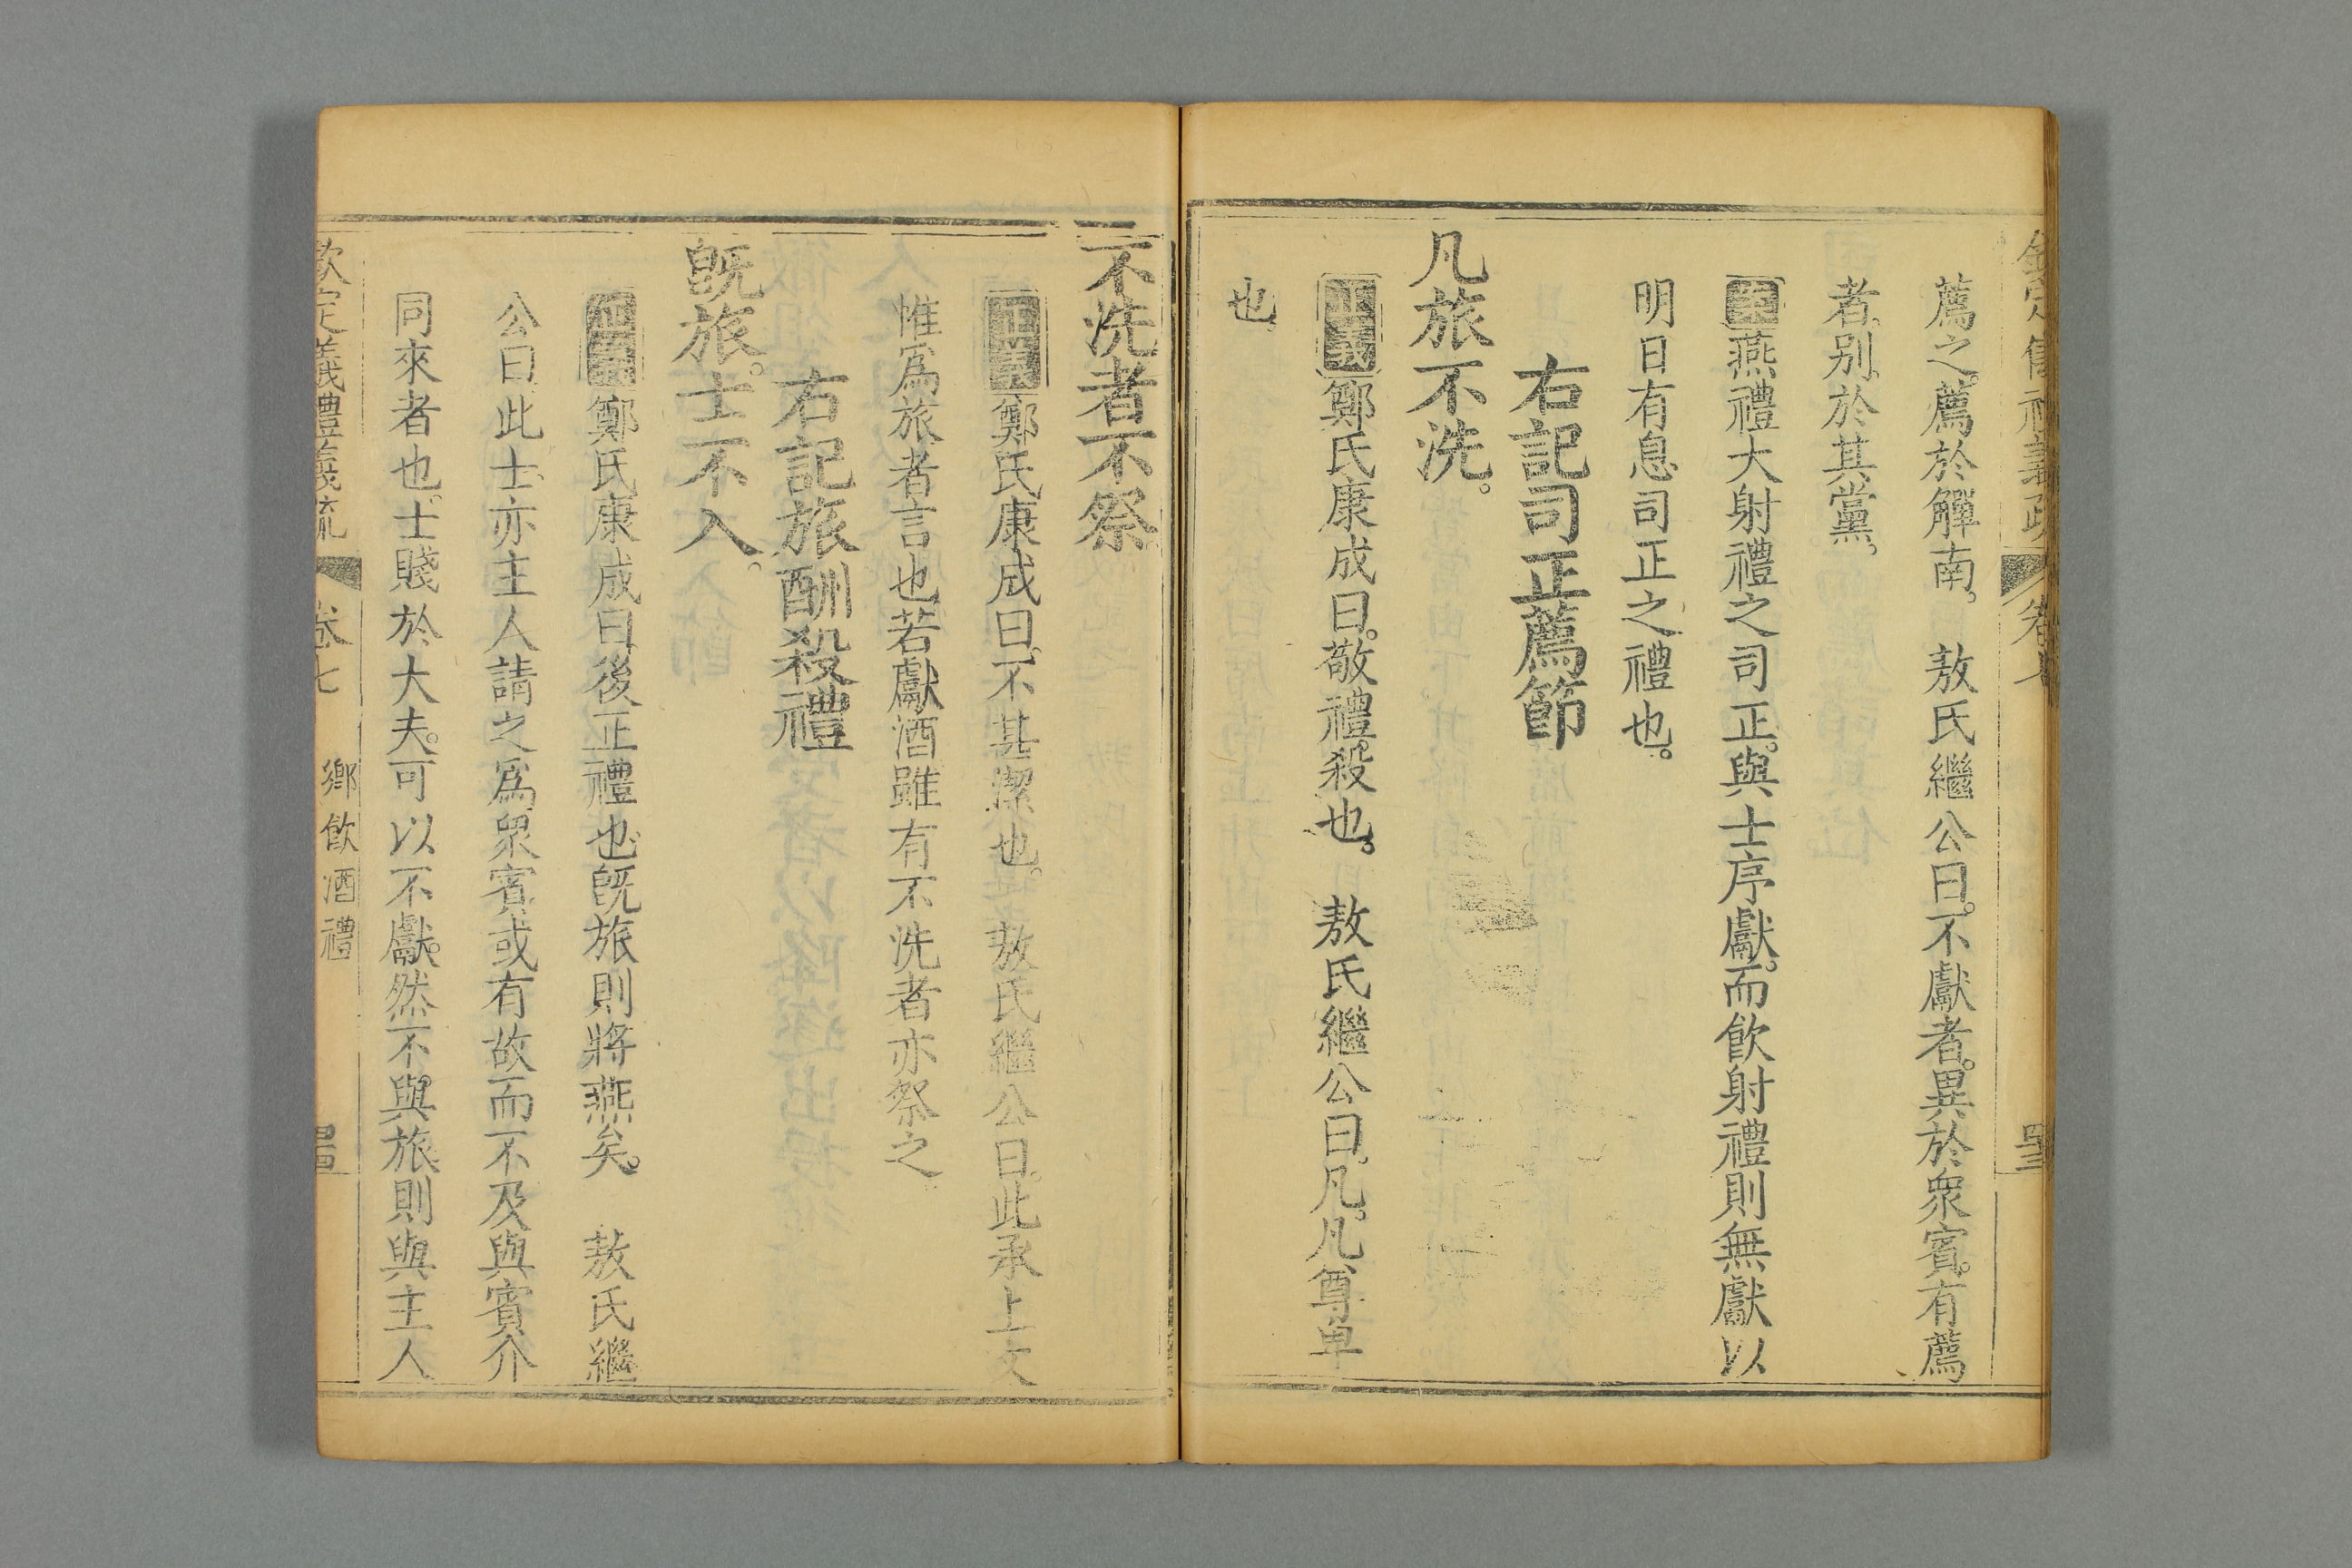 欽定儀禮義疏 卷七
薦之薦於觶南。 敖氏繼公曰。不獻者。異於衆賓。有薦
者。别於其黨。
案燕禮大射禮之司正。與士序獻。而飲射禮則無獻以
明日有息司正之禮也。
右記司正薦節
凡旅不洗。
正義鄭氏康成曰。敬禮。殺也。 敖氏繼公曰。凡。凡尊卑
也
不洗者不祭
正義鄭氏康成曰。不甚潔也。 敖氏繼公曰。此承上文
惟爲旅者言也若獻酒雖有不洗者亦祭之
右記旅酬殺禮
旣旅。士不入。
正義鄭氏康成曰後正禮也旣旅則將燕矣。 敖氏繼
公曰此士亦主人請之爲衆賓或有故而不及與賓介
同來者也。士賤於大夫。可以不獻。然不與旅則與主人
欽定儀禮義疏 卷七 鄉飲酒禮